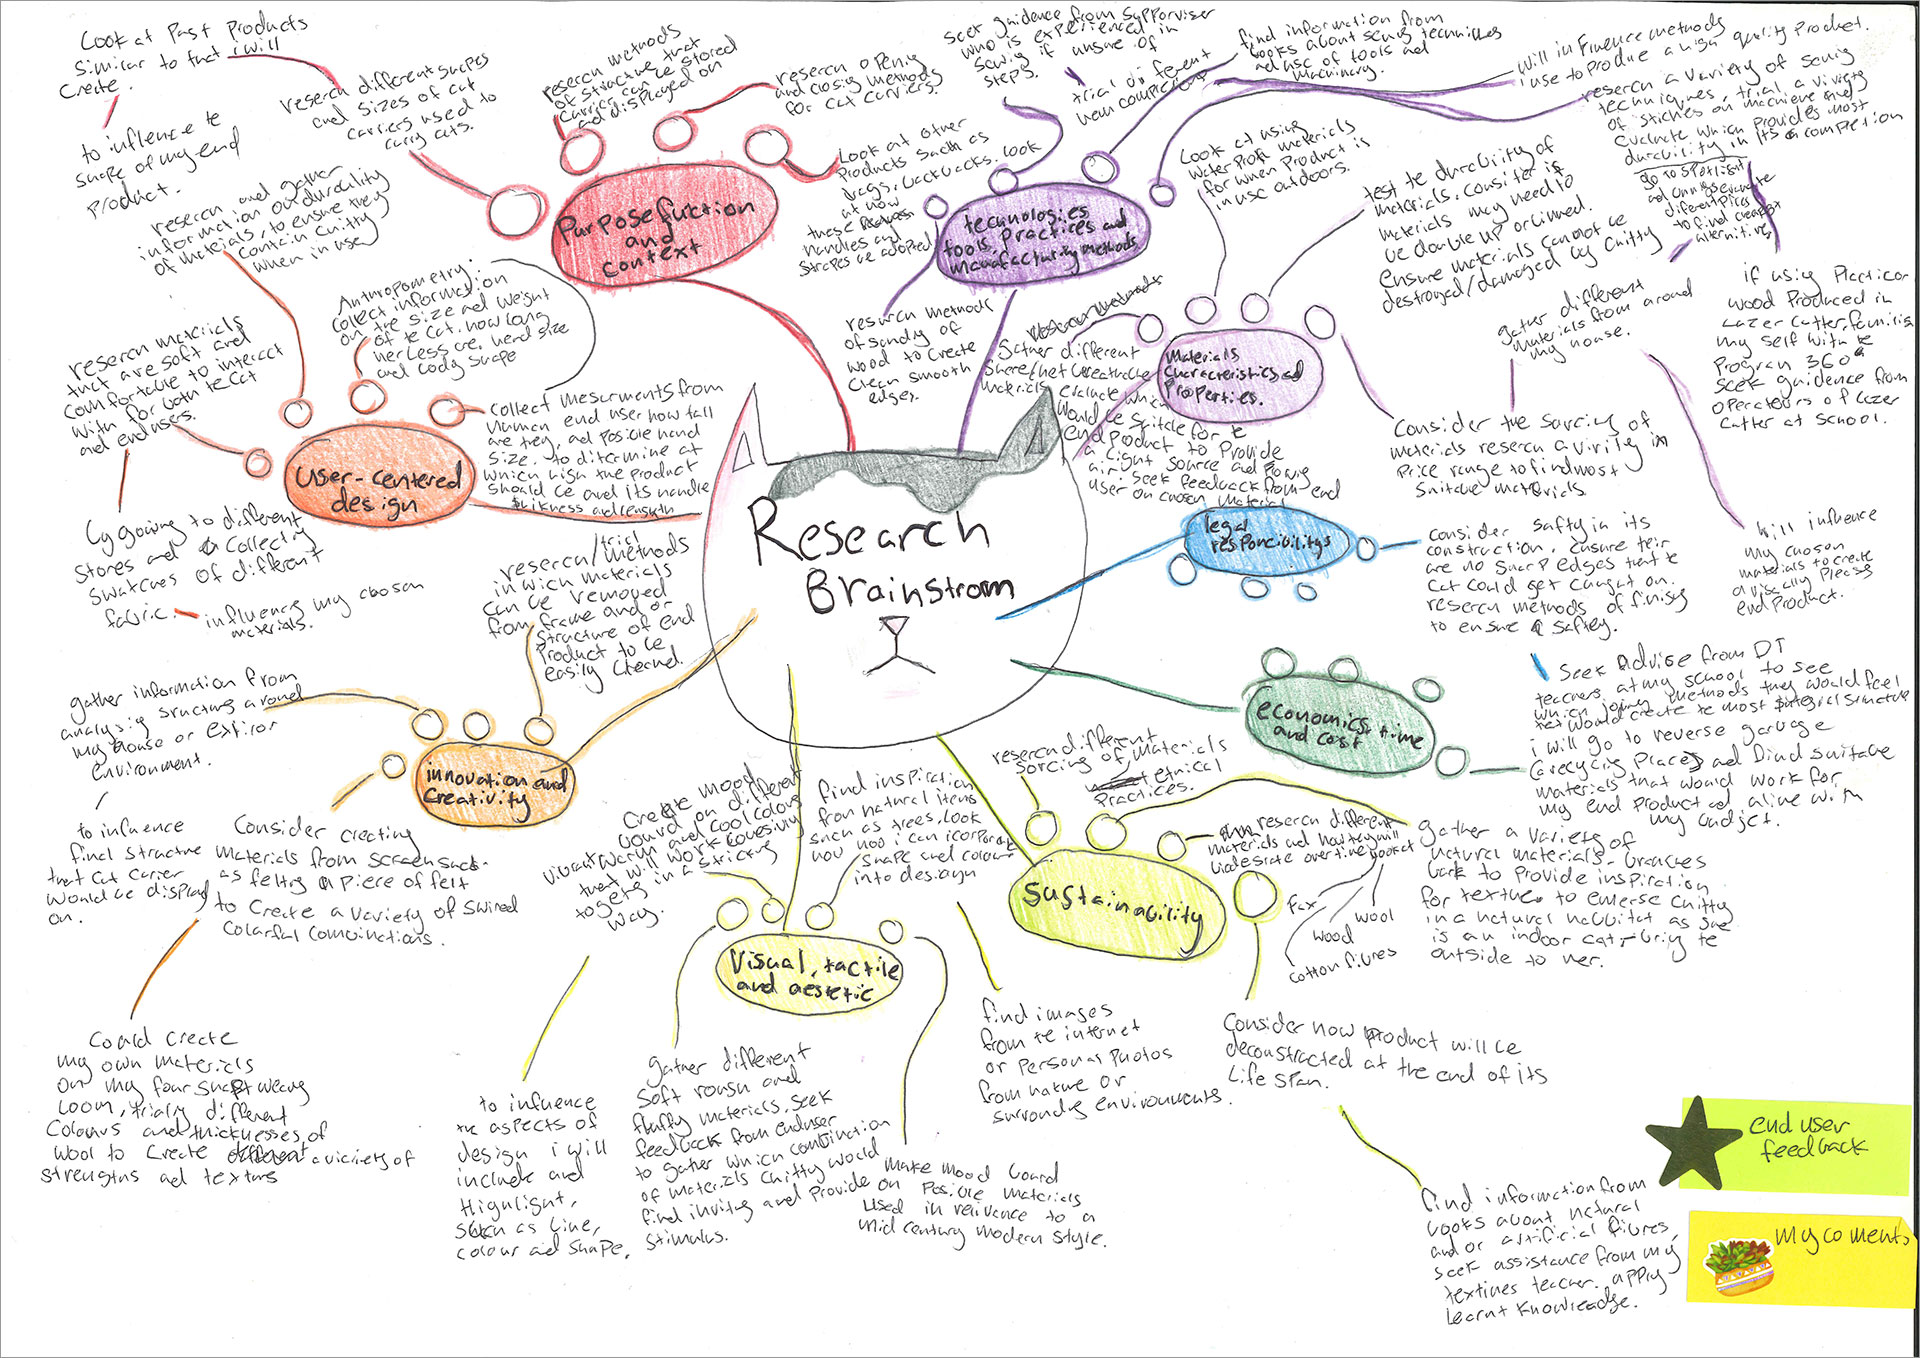 Research
Brainstrom
Purpose function
and
context
Look at Past Products
Similar to that i will
Create.
to inflence te
shape of my end
Product.
reserch different shapes
and sizes of cat
carriers used to
carry cats.
reserch methods
of structive that
carrier can be stored
ad displayed on
reserch opening
and closig methods
for cat carriers.
Look at other
Products such as
bags, backpacks. look
at how
these
handles and
straps are adopted
technologies
tools, Practices and
manufacturing methods
seek guidence from supporviser
who is experienced in
sewig if unsure of
steps.
trial different
hem completions
find information from
books about sewig techniches
ad use of tools ad
machinary.
will influence methods
i use to produce a high quality Product.
reserch a variety of sewig
techniques, trial a viriety
of stiches on machiene and
evaluate which provides most
durability in its completion
go to spotlight
ad evaluate
different prices
to find cheapest
alternitives
if using Plastic or
wood Produced in
Lazer cutter, familirise
my self with te
Program 360
seek guidence from
operatours of lazer
cutter at school.
reserch methods
of sandig of
wood to create
clean smooth
edges.
Materials
characteristics ad
Properties.
Gather different
sheer/net breathable
materials evaluate which
would be suitable for te
end product to Provide
a light source and
air. Seek feedback from end
user on chosen material
Look at using
water Proof materials
for when Product is
in use outdoors.
test te durability of
materials, consiter if
materials may need to
be double up or lined.
ensure materials cannot be
destroyed/damaged by Chitty
gather different
materials from around
my house.
Consider the sourcing of
materials reserch a virity in
Price range to find most
suitable materials.
will influence
my chosen
materials to create
a visually pleasig
end Product.
legal
responcibilitys
consider safty in its
construction. ensure teir
are no sharp edges that te
cat could get caught on.
reserch methods of finisig
to ensure safety.
Seek Advise from DT
teachers, at my school to see
which joing methods they would feel
would create te most structure
economics, time
and cost
i will go to reverse garbage
(recyclig Place) ad find suitable
materials that would work for
my end product ad aline with
my budjet.
Sustainability
reserch different
sorcing of materials
etnical
Practices.
reserch different
materials and how they will
biodegrate overtime
Flax
wool
wood
cotton fibres
gather a variety of
natural materials - branches
bark to Provide inspiration
for textures to emerse Chitty
in a natural habbitat as she
is an indoor cat, brig te
outside to her.
Consider how product will be
deconstracted at the end of its
life span.
find information from
books about natural
and or artificial fibres,
seek assistance from my
textiles teacher. apply
learnt knowleadge.
Visual, tactile
and aestetic
Create mood
board on different
vibrant warm and cool colours
that will work cohesivly
togethe in a striking
way.
to influence
the aspects of
design i will
include and
Highlight,
such as Line,
colour ad shape.
find inspiration
from natural items
such as trees, look
how i can icorporate
shape and colour
into desighn
find images
from te internet
or personal photos
from nature or
surrondig environments.
gather different
soft roush and
fluffy materials, seek
feedback from enduser
to gather which combination
of materials Chitty would
find inviting and provide
stimulus.
make mood board
on posible materials
used in relivance to a
mid century modern style.
innovation and
Creativity
gather information from
analysig structurs around
my house or extirior
environment.
to influence
final structure
that cat carrier
would be display
on.
Consider creating
materials from scrach such
as feltig a piece of felt
to create a variety of swirled
colorful combinations.
Could create
my own materials
on my four shaft weavig
loom, trialig different
colours and thicknesses of
wool to create a viriety of
strengths ad texturs
reserch/trial methods
in wich materials
can be removed
from frame and or
structure of end
Product to be
easily cleaned.
User-centered
design
reserch and gather
information on durability
of materials, to ensure they
contain Chitty
when in use
Anthropometry.
collect information
on the size and weight
of te cat, how long
her legs are, head size
and body shape
collect mesurments from
human end user how tall
are they, ad posible hand
size. to ditermine at
which high the product
should be and its handle
thikness and length
reserch materials
that are soft and
comfortable to interact
with for both te cat
and end users.
by going to different
stores and collecting
swatches of different
fabric. influencing my chosen
materials.
end user
feedback
my coments